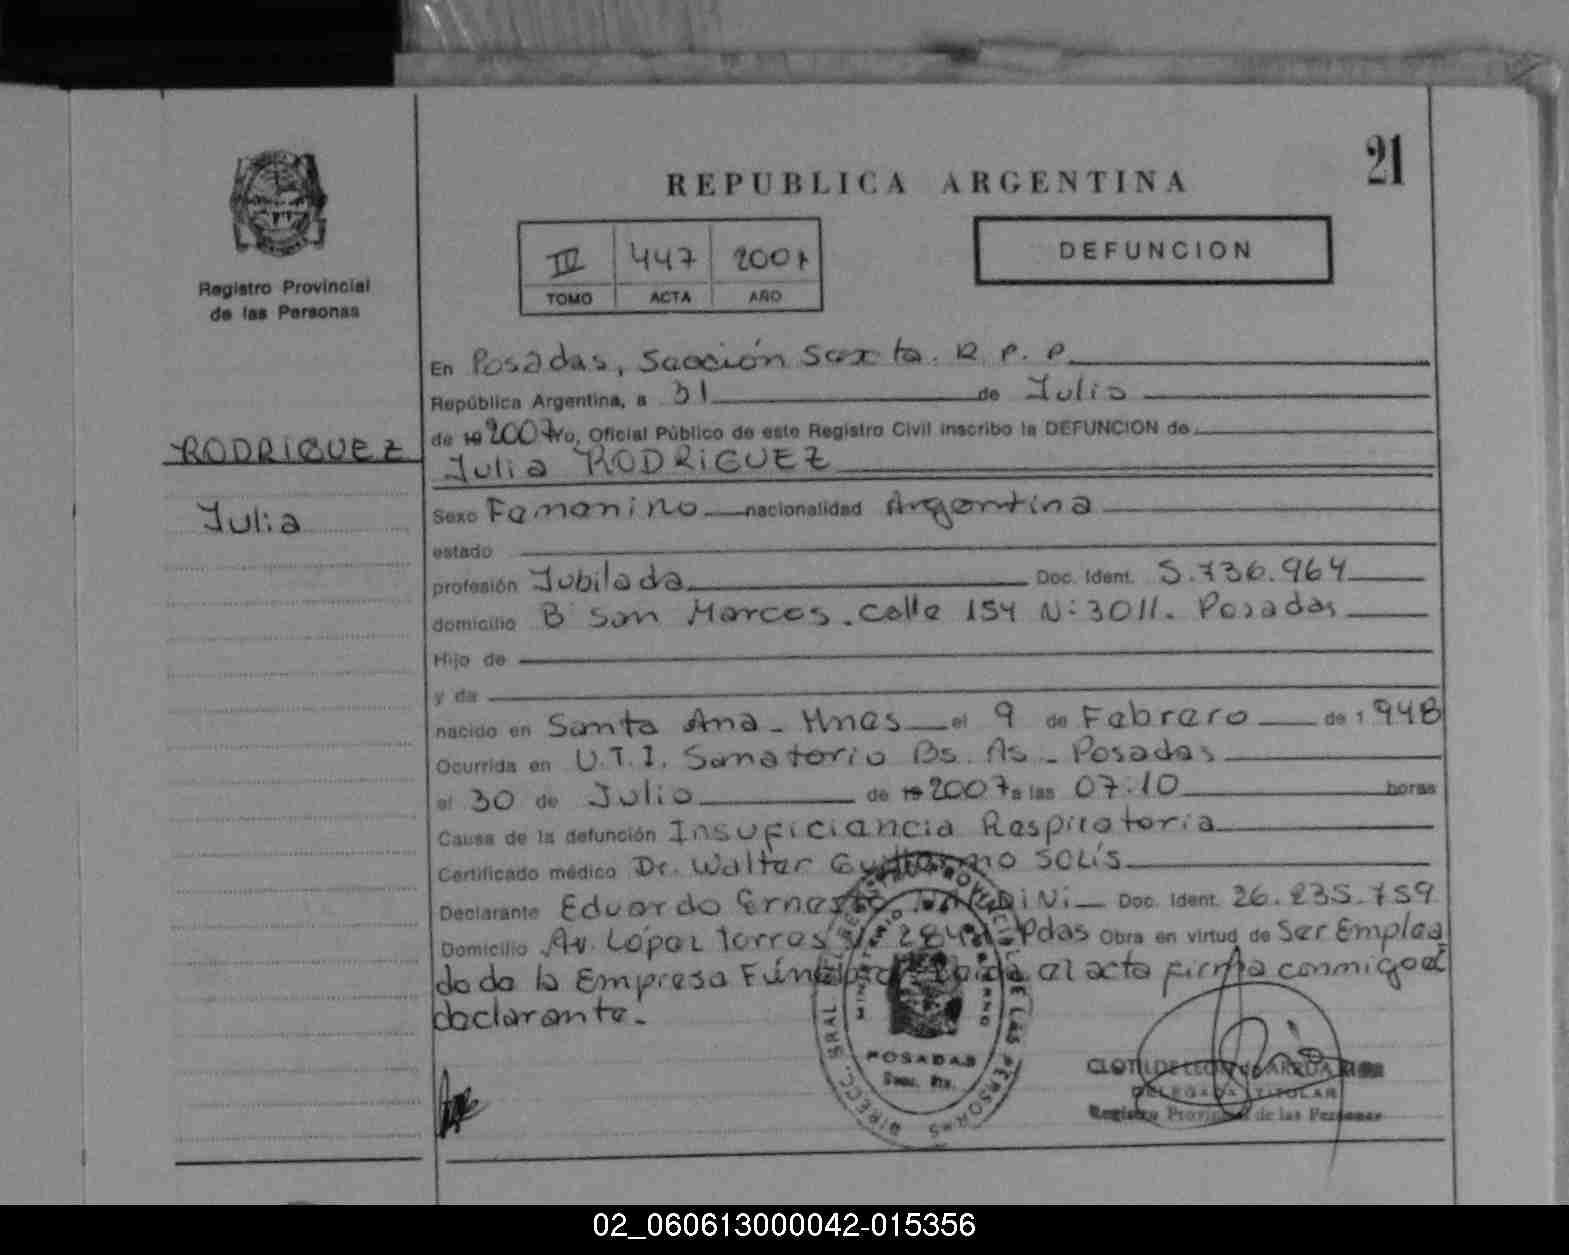 21
REPUBLICA ARGENTINA
III 447 2007
TOMO ACTA AÑO
DEFUNCION
Registro Provincial
de las Personas
RODRIGUEZ
Julia
En Posadas, Sección Sexta. R. P. P.
República Argentina, a 31 de Julio
de 19 2007 Yo, Oficial Público de este Registro Civil inscribo la DEFUNCION de
Julia RODRIGUEZ
Sexo Femenino nacionalidad Argentina
estado
profesión Jubilada Doc. Ident. 5.736.964
domicilio B San Marcos. calle 154 N: 3011. Posadas
Hijo de
y de
nacido en Santa Ana - Mnes el 9 de Febrero de 1948
Ocurrida en U.T.I. Sanatorio Bs. As - Posadas
el 30 de Julio de 19 2007 a las 07:10 horas
Causa de la defunción Insuficiencia Respiratoria
Certificado médico Dr. Walter Guillermo SOLÍS
Declarante Eduardo Ernesto Doc. Ident. 26.235.759
Domicilio Av. López Torres Pdas Obra en virtud de Ser Emplea
do de la Empresa Fúnebre Leída el acta firma conmigo el
declarante.
DIRECC. GRAL. DEL REGISTRO PROVINCIAL DE LAS PERSONAS
MINISTERIO DE GOBIERNO
POSADAS
CLOTILDE
DELEGADA TITULAR
Registro Provincial de las Personas
02_060613000042-015356